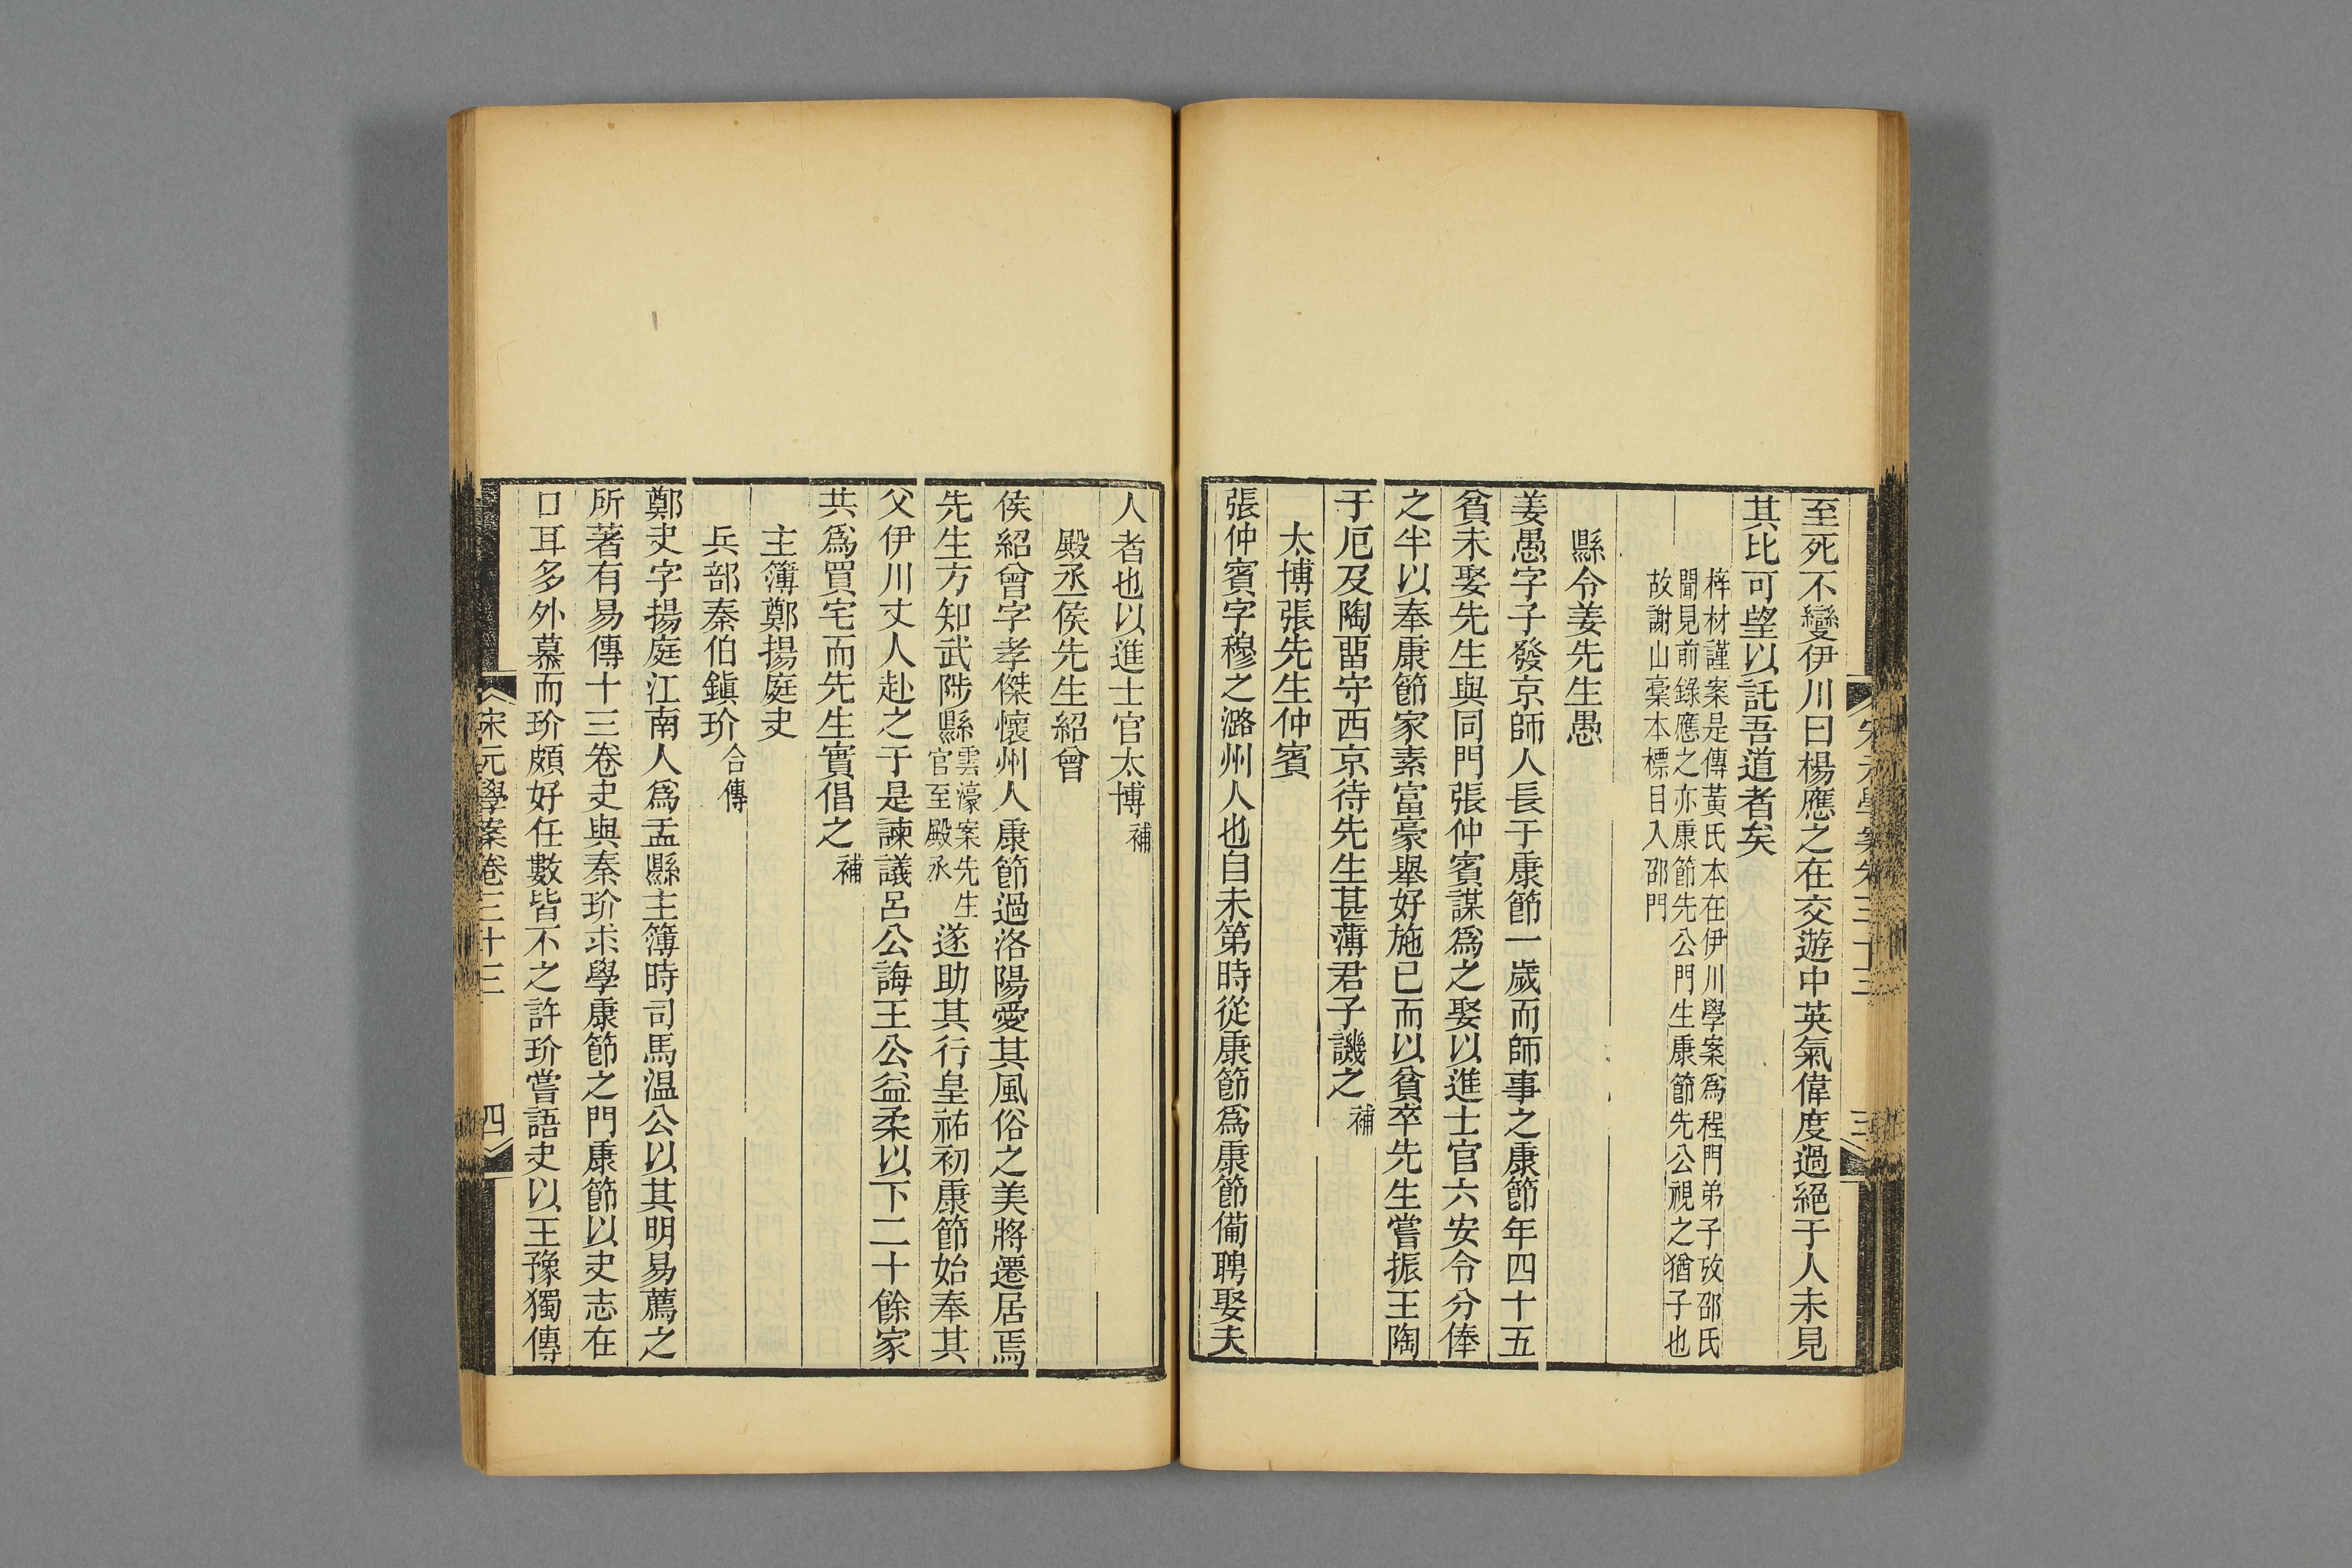 至死不變伊川曰楊應之在交遊中英氣偉度過絕于人未見
其比可望以託吾道者矣
梓材謹案是傳黃氏本在伊川學案爲程門弟子攷邵氏
聞見前錄應之亦康節先公門生康節先公視之猶子也
故謝山稾本標目入邵門
縣令姜先生愚
姜愚字子發京師人長于康節一歲而師事之康節年四十五
貧未娶先生與同門張仲賓謀爲之娶以進士官六安令分俸
之半以奉康節家素富豪舉好施已而以貧卒先生嘗振王陶
于厄及陶畱守西京待先生甚薄君子譏之補
太博張先生仲賓
張仲賓字穆之潞州人也自未第時從康節爲康節備聘娶夫
人者也以進士官太博補
殿丞侯先生紹曾
侯紹曾字孝傑懷州人康節過洛陽愛其風俗之美將遷居焉
先生方知武陟縣雲濠案先生官至殿丞遂助其行皇祐初康節始奉其
父伊川丈人赴之于是諫議呂公誨王公益柔以下二十餘家
共爲買宅而先生實倡之補
主簿鄭揚庭夬
兵部秦伯鎭玠合傳
鄭夬字揚庭江南人爲孟縣主簿時司馬温公以其明易薦之
所著有易傳十三卷夬與秦玠求學康節之門康節以夬志在
口耳多外慕而玠頗好任數皆不之許玠嘗語夬以王豫獨傳
宋元學案卷三十三
四